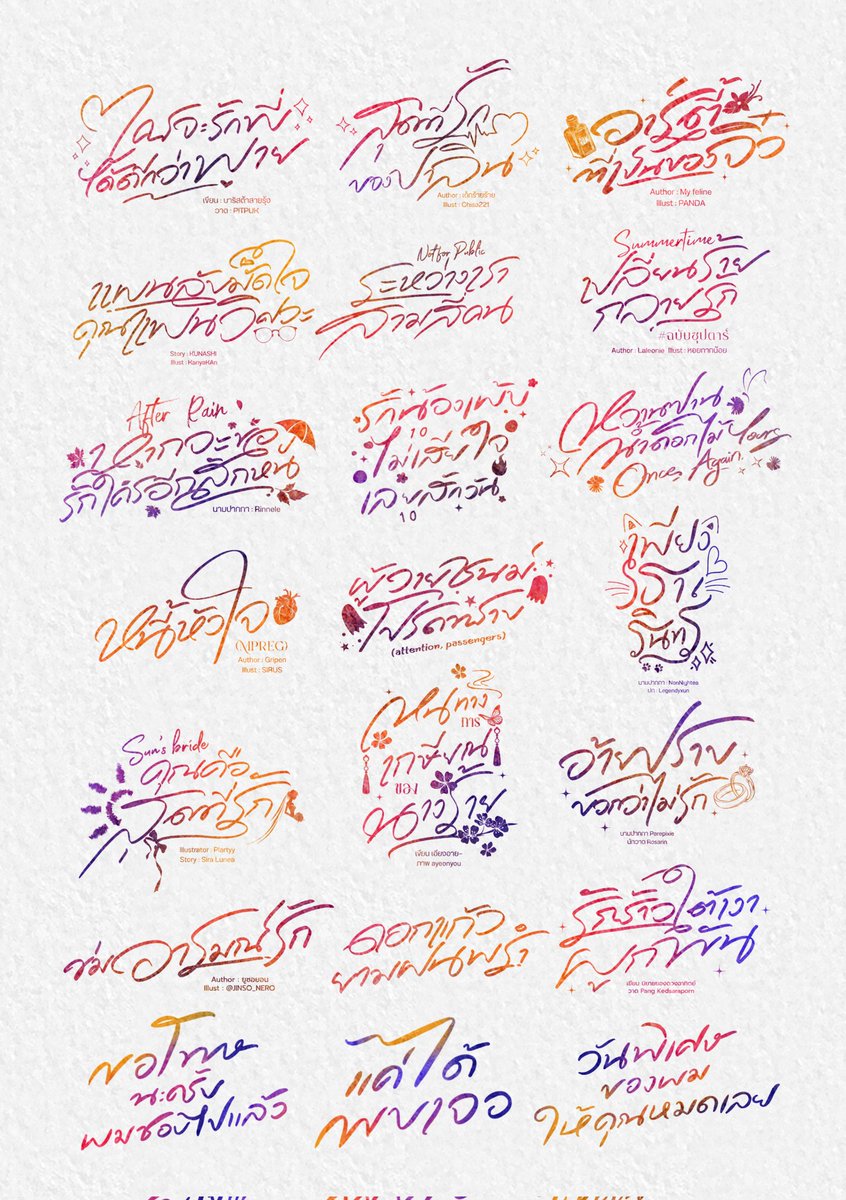 ใครจะรักพี่
ได้ดีกว่าพูพาย
เขียน : บาริสต้าสายรุ้ง
วาด : PITPUK
สุดที่รัก
ของปาลิน
Author : เด็กร้ายร้าย
Illust : Chiso221
อาร์ตี้
ที่เป็นของจิ๋ว
Author : My feline
Illust : PANDA
แฟนลับมัดใจ
คุณแฟนอิศวะ
Story : KUNASHI
Illust : KanyaKAn
Not for Public
ระหว่างเรา
สามสี่คน
Summertime
เปลี่ยนร้าย
กลายรัก
#ฉบับซุปตาร์
Author : Laleonie Illust : หอยทากน้อย
After Rain
หากจะขอ
รักใครอีกสักหน
นามปากกา : Rinnele
รักน้องแพ้บ
10
ไม่เสียใจ
เลยสักวัน
10
หวานปาน
น้ำดอกไม้ Yours
Once, Again.
หนี้หัวใจ
(MPREG)
Author : Gripen
Illust : SIRUS
ผู้ชายชนม์
โปรดทราบ
(attention, passengers)
เพียง
ธารา
รินทร์
นามปากกา : NonNightea
ปก : Legendyxun
Sun's bride
คุณคือ
สุดที่รัก
Illustrator : Plartyy
Story : Sira Lunea
หนทาง
การ
เกษียณ
ของ
นางร้าย
เขียน เอียงอาย~
ภาพ ayeonyou
อ้ายปราบ
บอกว่าไม่รัก
นามปากกา Perepixie
นักวาด Rosarin
ซ่มอารมณ์รัก
Author : ยูซอยอน
Illust : @JINSO_NERO
ดอกแก้ว
ยามฝนพรำ
รักร้าวใต้เงา
ผูกพัน
เขียน นิยายของดวงอาทิตย์
วาด Pang Kedsaraporn
ขอโทษ
นะครับ
ผมชอบไปแล้ว
แค่ได้
พบเจอ
วันพิเศษ
ของผม
ให้คุณหมดเลย